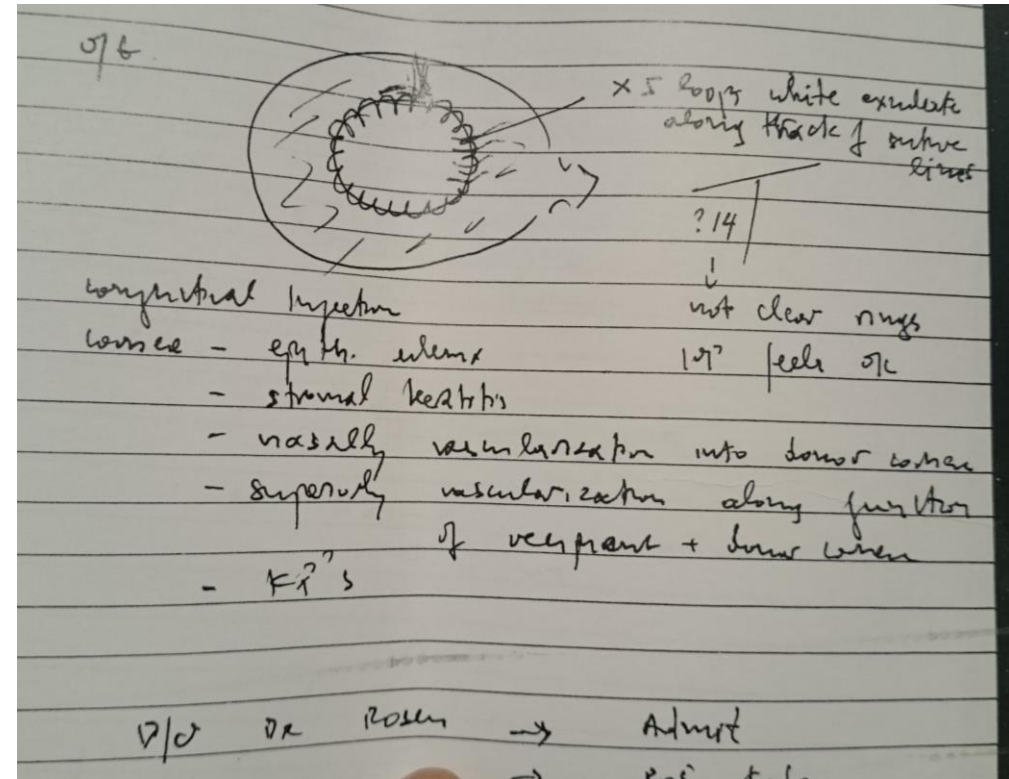 o/e
x 5 loops white exudate
along track of suture
lines
? 14
↓
not clear rings
IOP feels ok
conjunctival Injection
cornea - epith. edema
- stromal keratitis
- nasally vascularization into donor cornea
- superiorly vascularization along junction
of recipient + donor cornea
- KP's
D/W DR Rosen → Admit
→